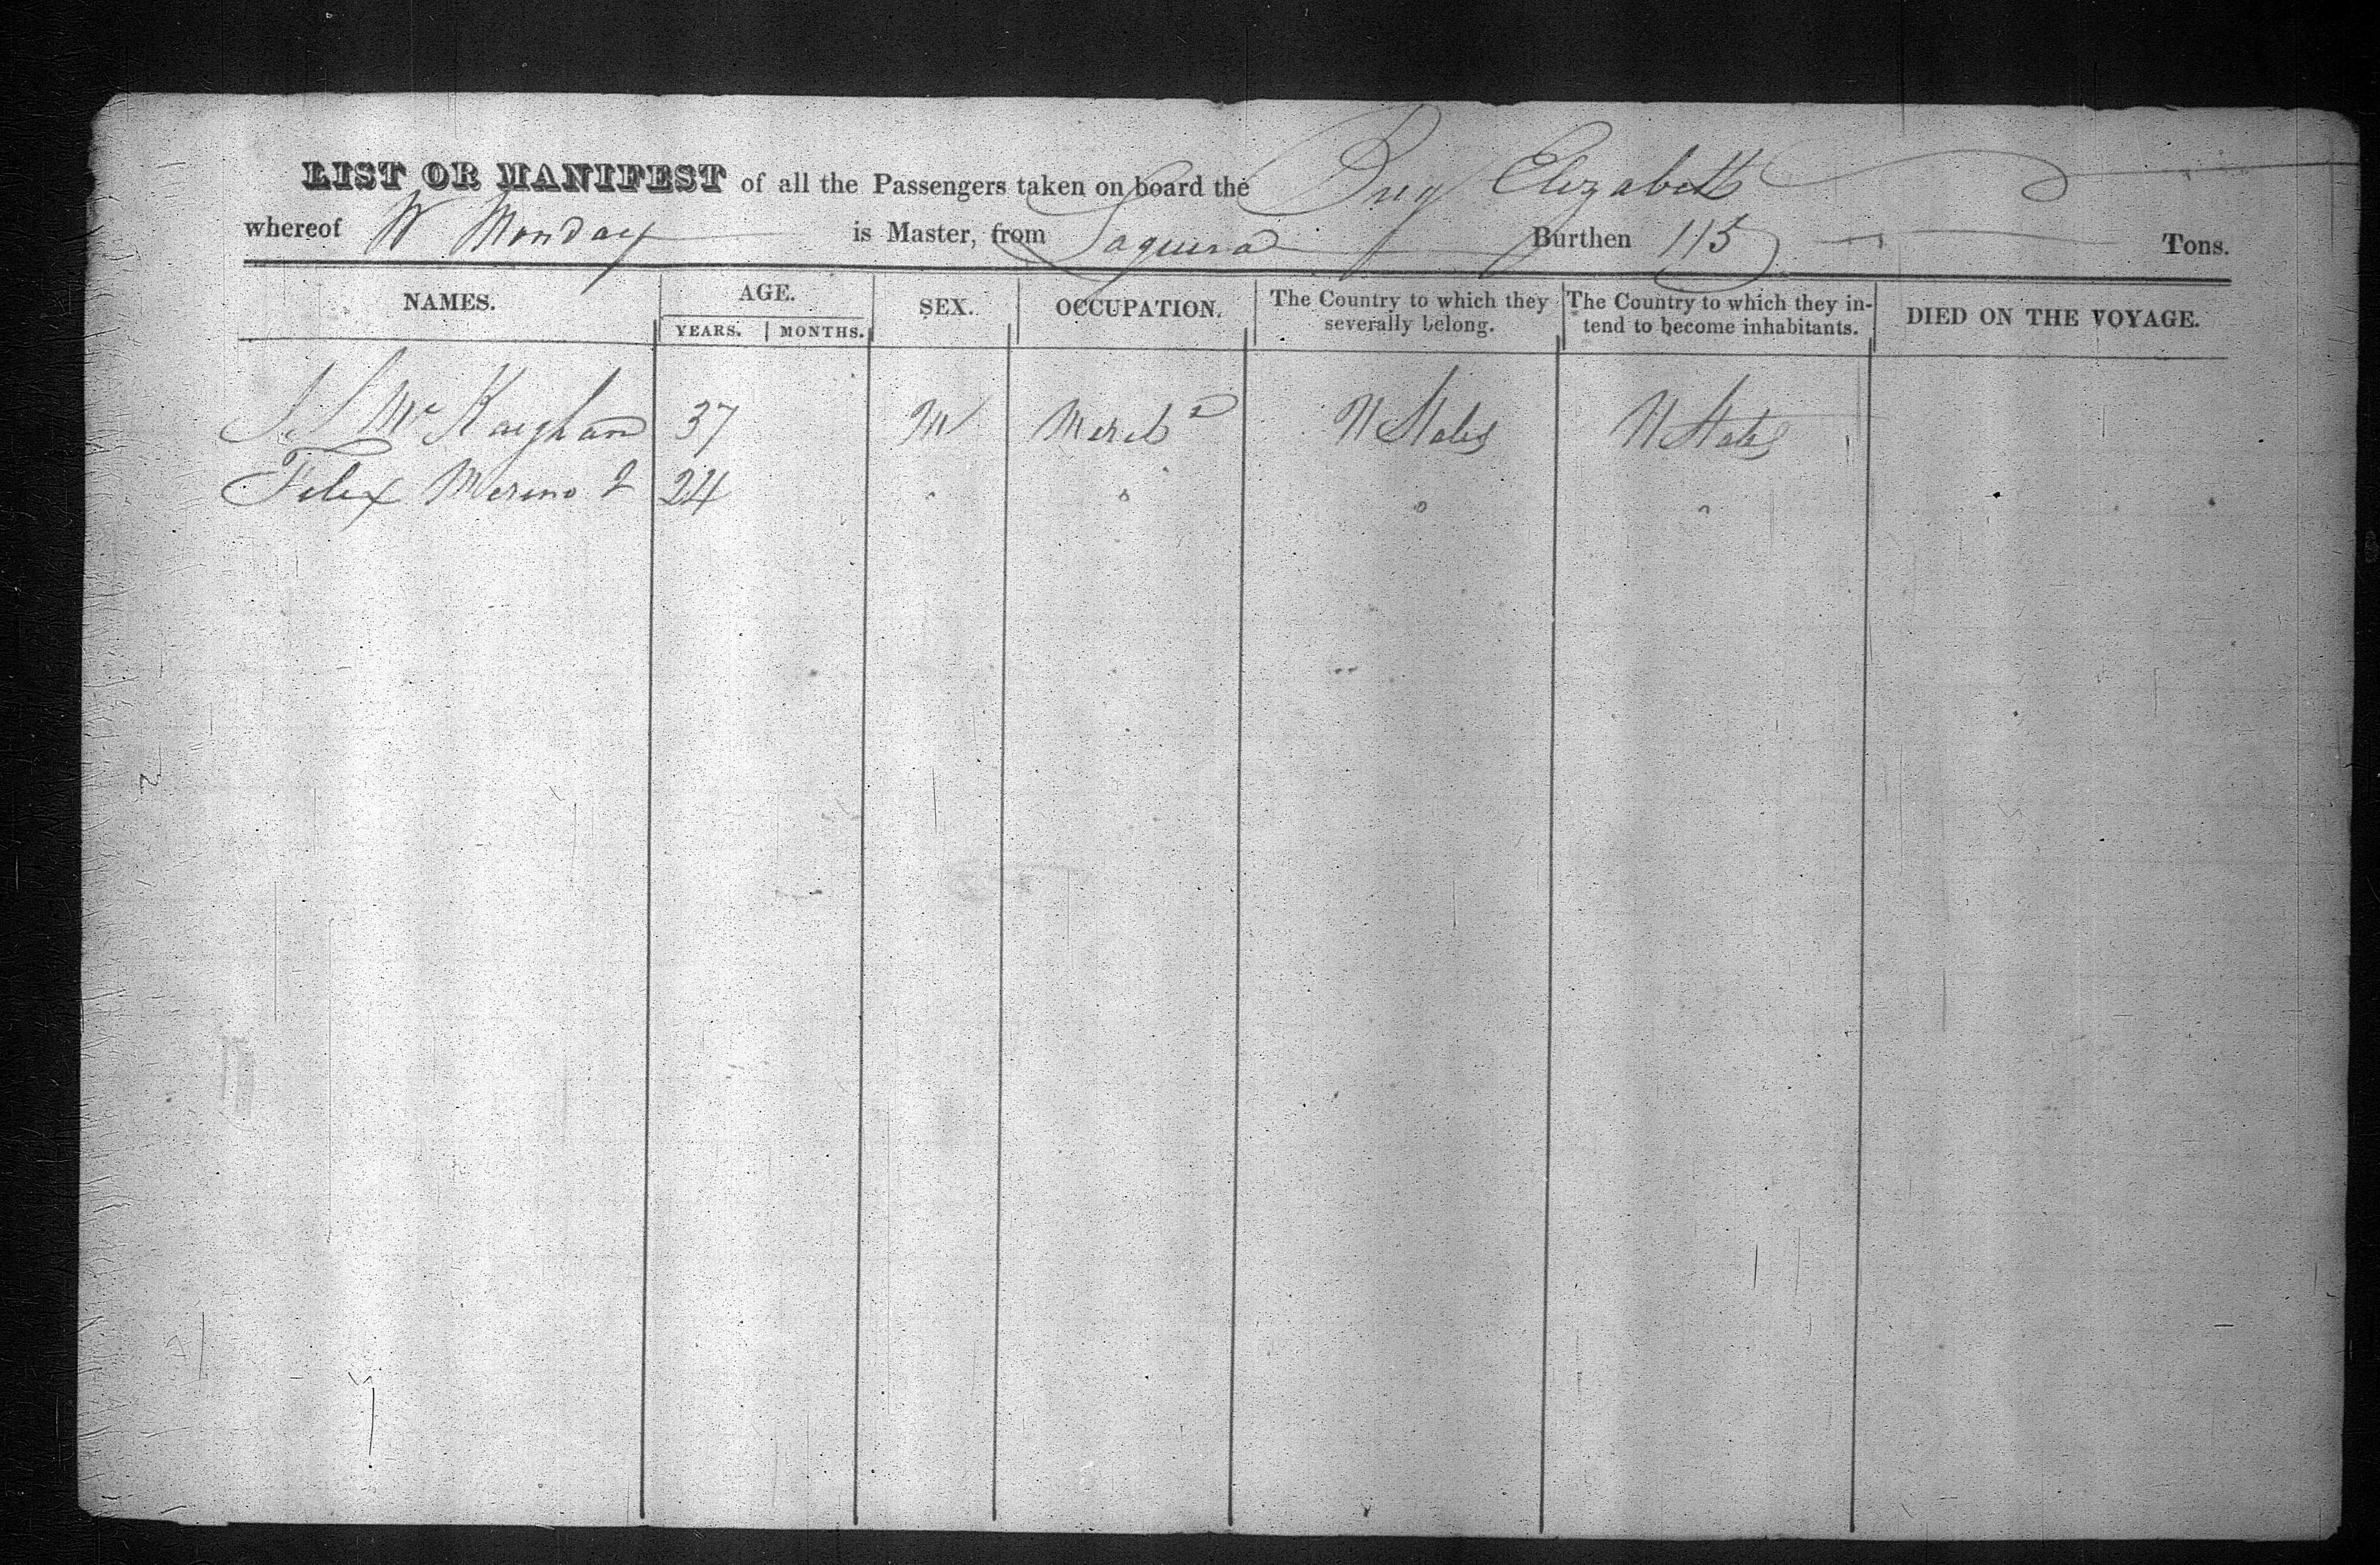 LIST OR MANIFEST of all the Passengers taken on board the Brig Elizabeth
whereof W Monday is Master, from Laguira Burthen 115 Tons.
NAMES. AGE. SEX. OCCUPATION. The Country to which they severally belong. The Country to which they intend to become inhabitants. DIED ON THE VOYAGE.
YEARS. MONTHS.
Mc 37 M U States U States
Felix Merino 24 " " " "